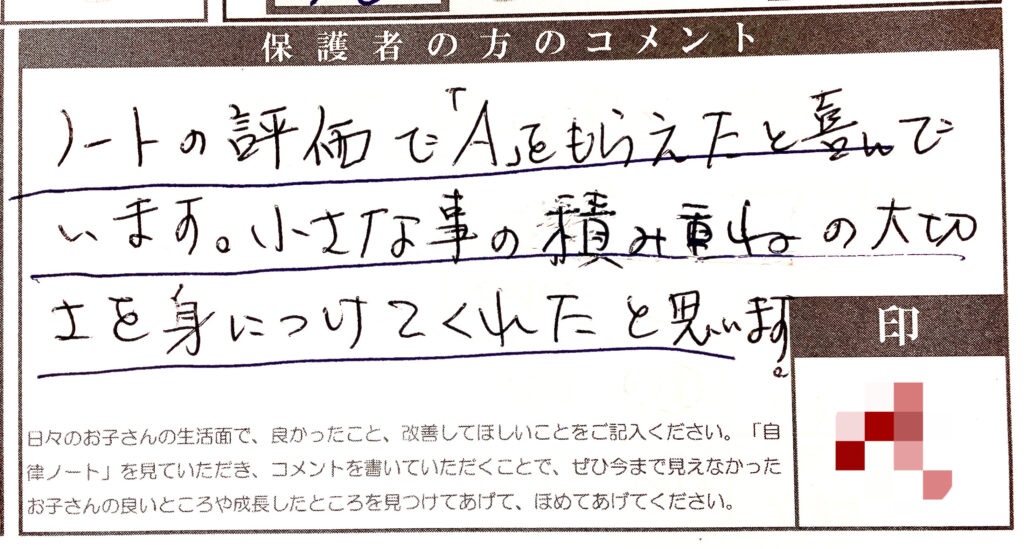 保護者の方のコメント
ノートの評価で「A」をもらえたと喜んで
います。小さな事の積み重ねの大切
さを身につけてくれたと思います。
印
日々のお子さんの生活面で、良かったこと、改善してほしいことをご記入ください。「自
律ノート」を見ていただき、コメントを書いていただくことで、ぜひ今まで見えなかった
お子さんの良いところや成長したところを見つけてあげて、ほめてあげてください。